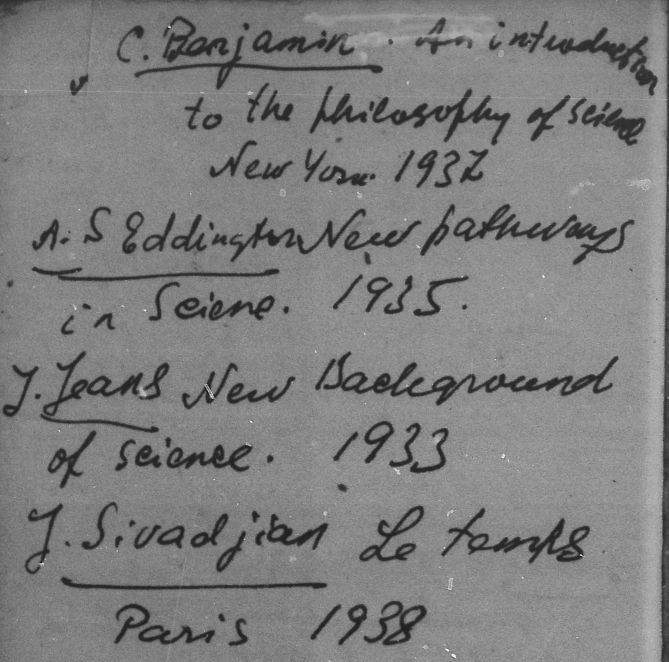 C. Benjamin. An introduction
to the philosophy of science
New York. 1937
A. S Eddington New pathways
in Sciene. 1935.
J. Jeans New Background
of science. 1933
J. Sivadjian Le temps
Paris 1938